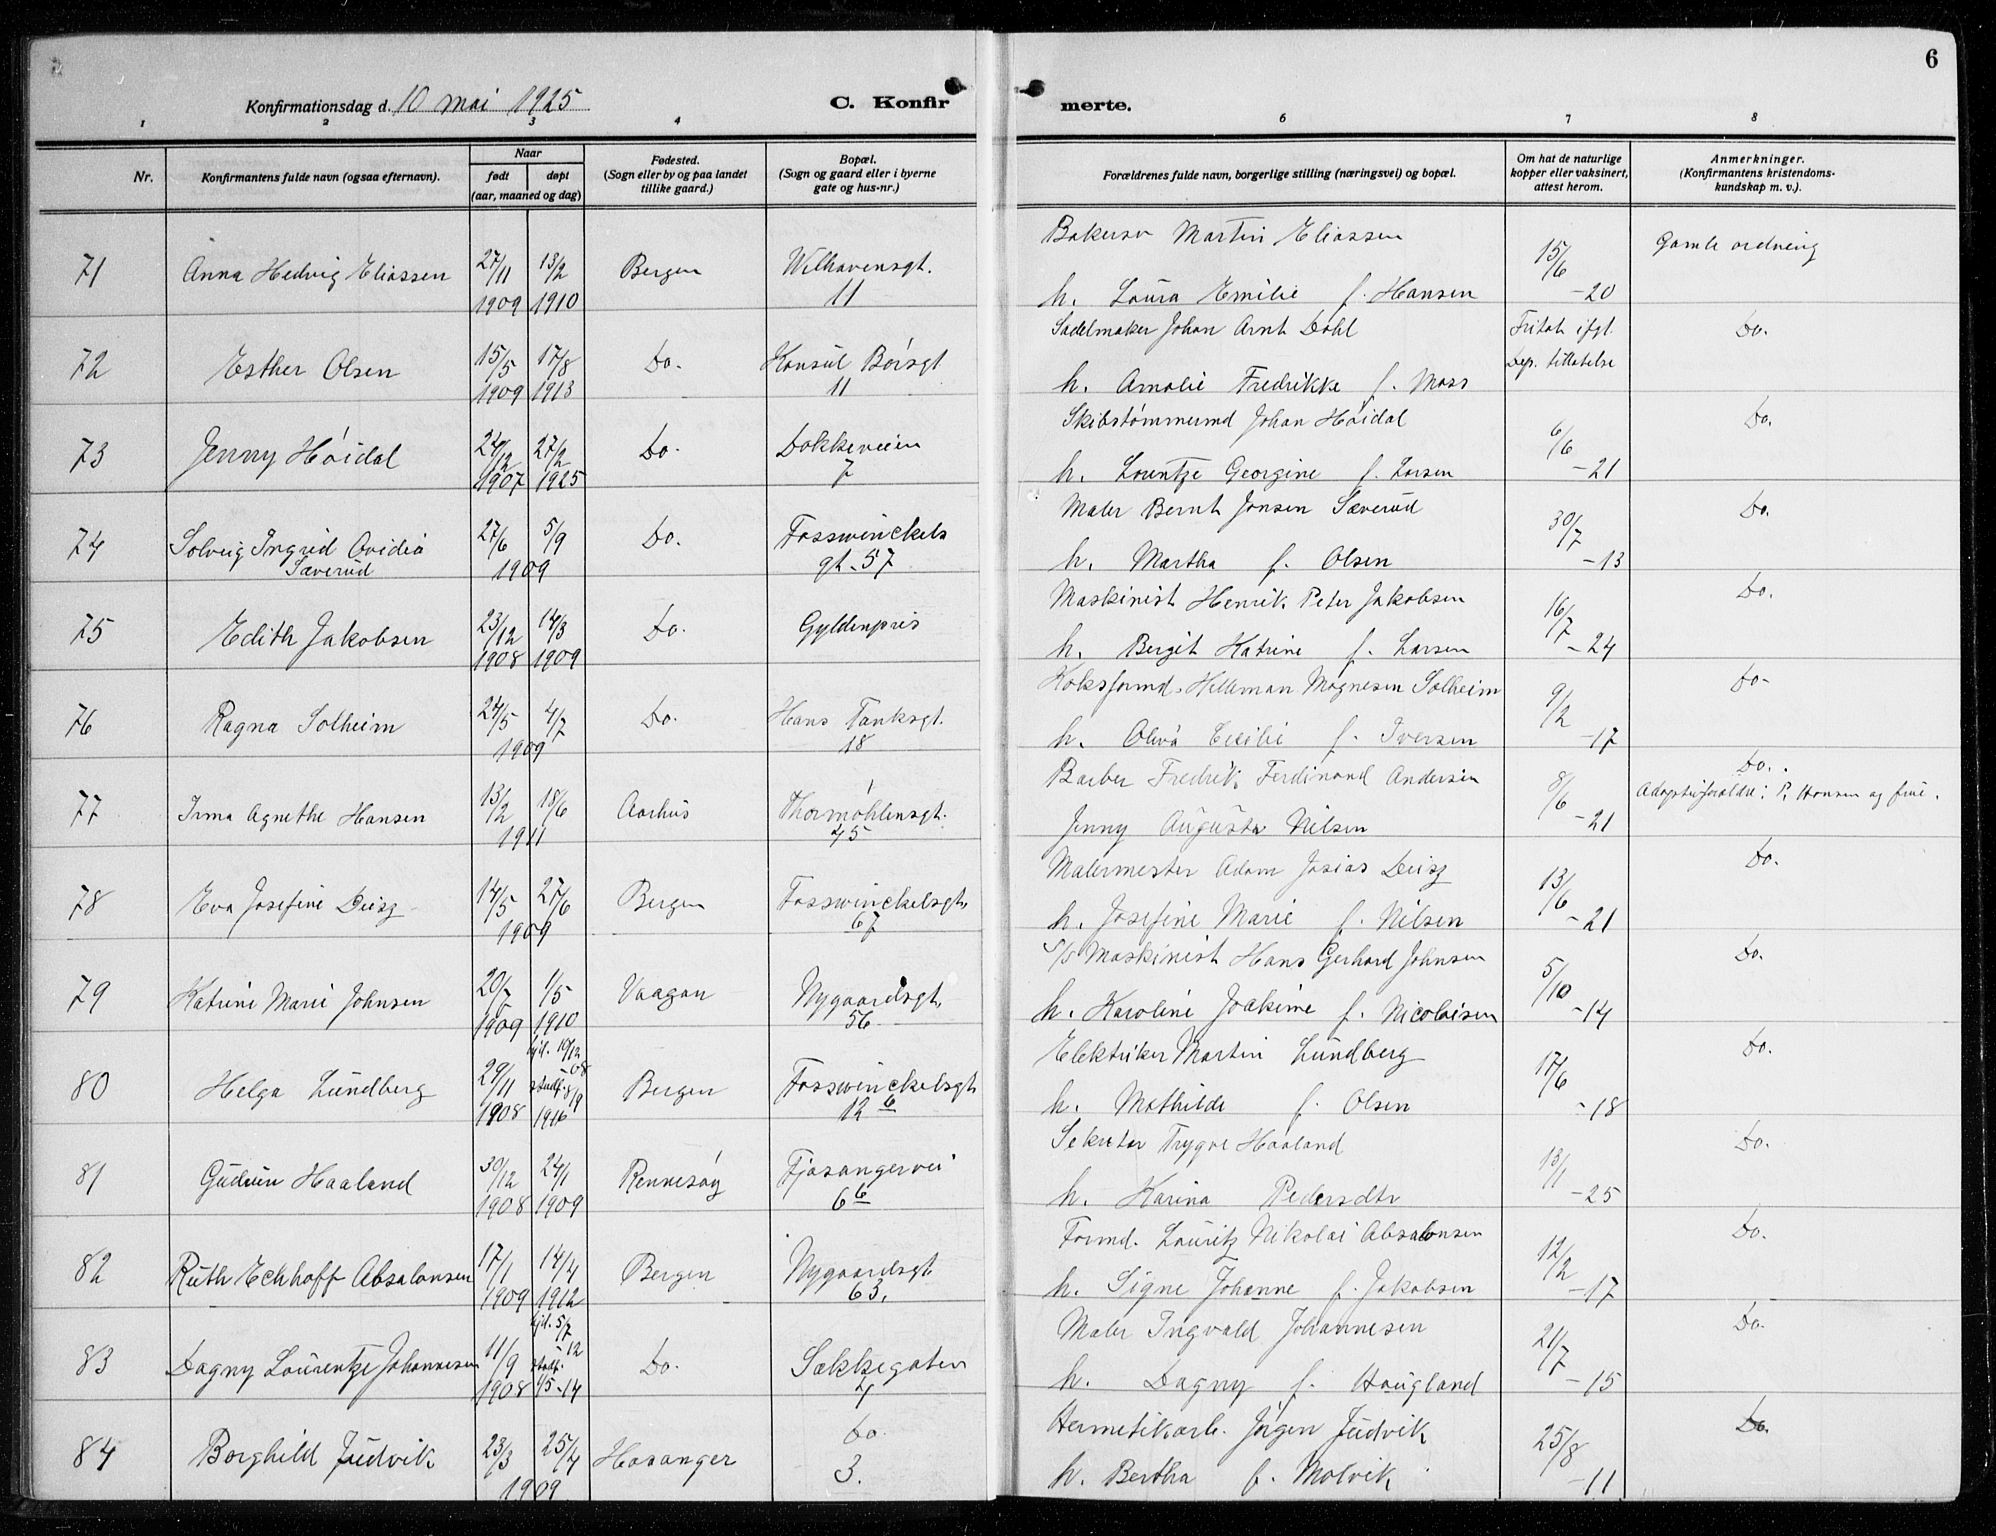 6
Konfirmationsdag d. 10 mai 1925
C. Konfirmerte.
1 2 3 4 6 7 8
Nr.
Konfirmantens fulde navn (ogsaa efternavn).
Naar
født døpt
(aar, maaned og dag)
Fødested.
(Sogn eller by og paa landet
tillike gaard.)
Bopæl.
(Sogn og gaard eller i byerne
gate og hus-nr.)
Forældrenes fulde navn, borgerlige stilling (næringsvei) og bopæl.
Om hat de naturlige
kopper eller vaksinert,
attest herom.
Anmerkninger.
(Konfirmantens kristendoms-
kundskap m. v.).
71 Anna Hedvig Eliassen 27/11 1909 13/2 1910 Bergen Welhavensgt. 11
Bakersv Martin Eliassen
h. Laura Emilie f. Hansen
15/6 -20 Gamle ordning
72 Esther Olsen 15/5 1909 17/8 1913 Do. Konsul Børsgt 11
Sadelmaker Johan Arnt Dahl
h. Amalie Fredrikke f. Moss
Fritat ifgt Dep. tillatelse Do.
73 Jenny Høidal 24/12 1907 27/2 1925 Do. Dokkeveien 7
Skibstømmermd Johan Høidal
h. Lourntze Georgine f. Larsen
6/6 -21 Do.
74 Solveig Ingrid Ovidia Sæverud 27/6 5/9 1909 Do. Fosswinckels gt. 57
Maler Bernt Jonsen Sæverud
h. Martha f. Olsen
30/7 -13 Do.
75 Edith Jakobsen 23/12 1908 14/3 1909 Do. Gyldenpris
Maskinist Henrik Peter Jakobsen
h. Bergit Katrine f. Larsen
16/7 -24 Do.
76 Ragna Solheim 24/5 4/7 1909 Do. Hans Tanksgt. 18
Koksformd. Hilleman Magnesen Solheim
h. Oliva Cecilie f. Iversen
9/2 -17 Do-
77 Irma Agnethe Hansen 13/2 18/6 1911 Aarhus Thormøhlensgt. 45
Barber Fredrik Ferdinand Andersen
Jenny Augusta Nilsen
8/6 -21 Do.
Adoptivforældre: P. Hansen og frue.
78 Eva Josefine Deisz 14/5 27/6 1909 Bergen Fosswinckelsgt. 67
Malermester Adam Josias Deisz
h. Josefine Marie f. Nilsen
13/6 -21 Do.
79 Katrine Marie Johnsen 20/7 1909 1/5 1910 Vaagan Nygaardsgt. 56
S/S Maskinist Hans Gerhard Johnsen
h. Karoline Joakime f. Nicolaisen
5/10 -14 Do.
80 Helga Lundberg 29/11 1908 hjd. 10/12 -08 stadf. 8/9 1916 Bergen Fosswinckelsgt 12 b
Elektriker Martin Lundberg
h. Mathilde f. Olsen
17/6 -18 Do.
81 Gudrun Haaland 30/12 1908 24/1 1909 Rennesøy Fjøsangervei 6 b
Sekretær Trygve Haaland
h. Karina Pedersdtr
13/1 -25 Do.
82 Ruth Echhoff Absalonsen 17/1 1909 14/4 1912 Bergen Nygaardsgt. 63.
Formd. Lauritz Nikolai Absalonsen
h. Signe Johanne f. Jakobsen
12/2 -17 Do.
83 Dagny Laurentze Johannesen 11/9 1908 hjd. 5/7 -12 stadf. 4/5-14 Do. Sækkegaten 4
Maler Ingvald Johannesen
h. Dagny f. Haugland
21/7 -15 Do.
84 Borghild Judvik 23/3 25/4 1909 Hosanger Do. 3.
Hermetikarb. Jørgen Judvik
h. Bertha f. Molvik
25/8 -11 Do.